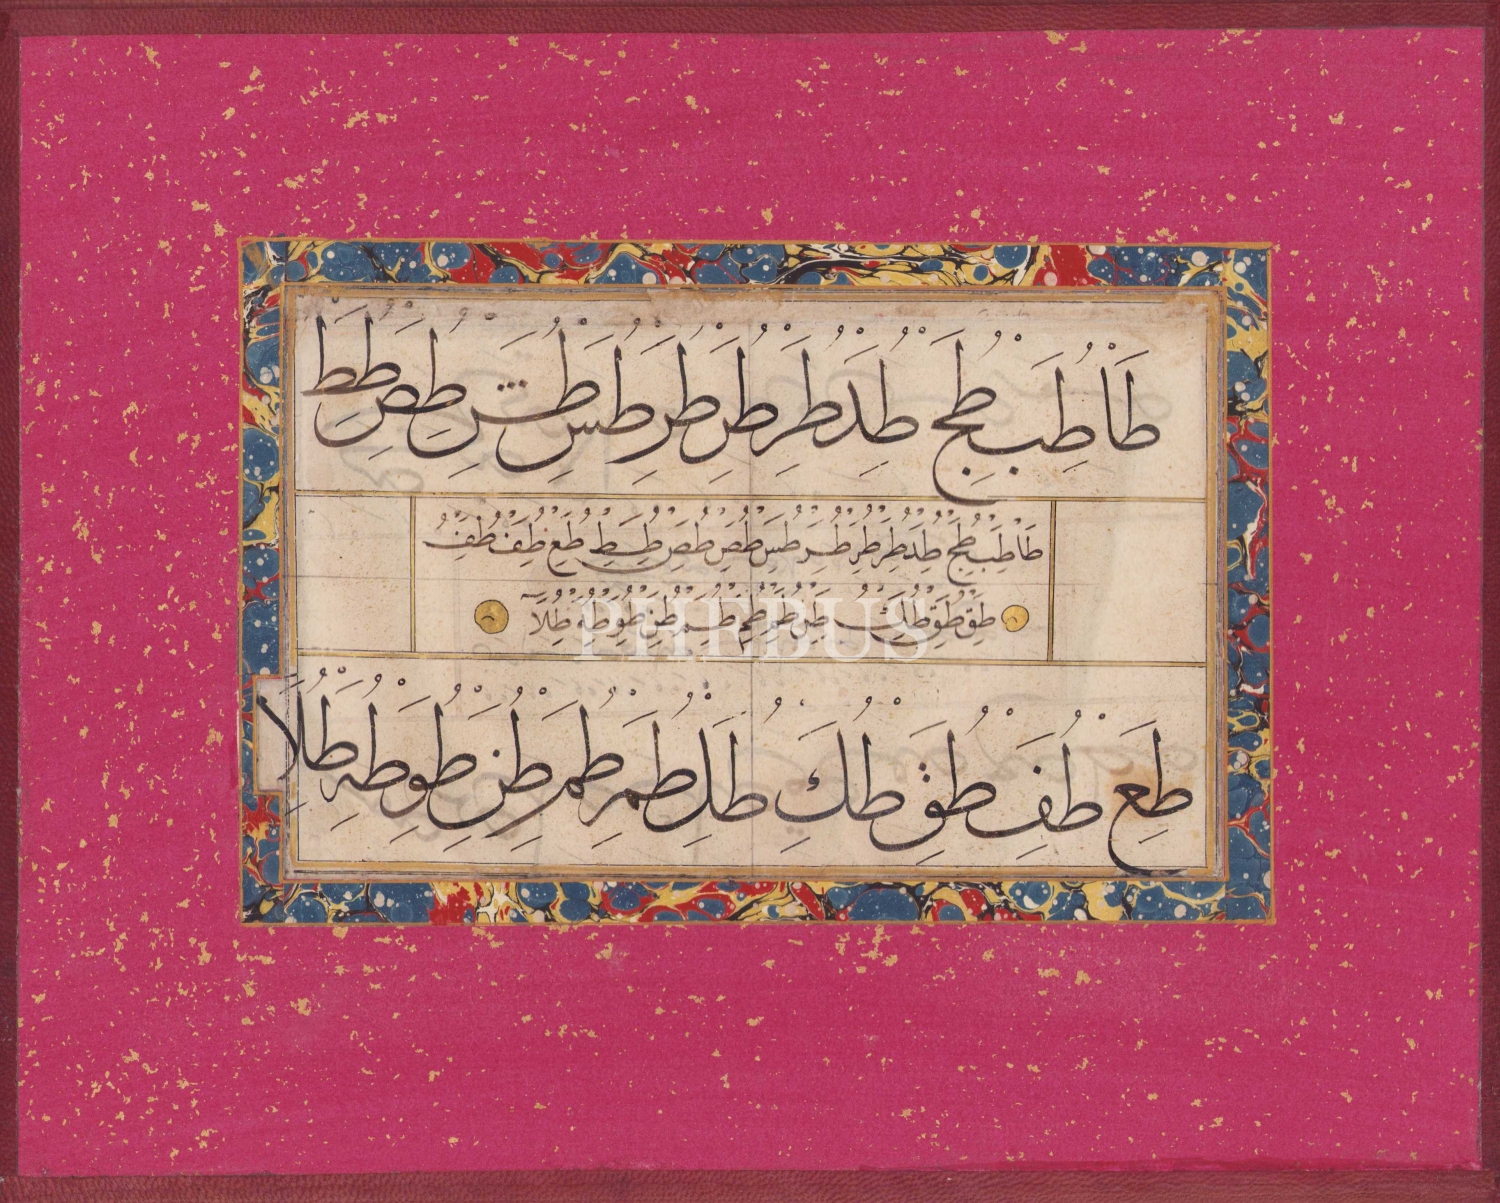 طا طب طج طد طر طر طر طس طش طص طط
طا طب طج طد طر طر طر طس طص طص طط طع طف طف
طق طق طك طن طم طم طم طن طو طه طلا
طع طف طق طك طل طم طم طن طو طه طلا
PHEBUS